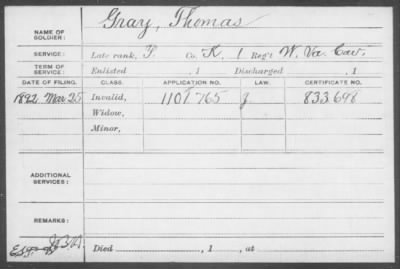 Gray, Thomas
NAME OF SOLDIER:
SERVICE: Late rank, P. Co. K, 1 Reg't W. Va. Cav.
TERM OF SERVICE: Enlisted , 1 Discharged , 1
DATE OF FILING. CLASS. APPLICATION NO. LAW. CERTIFICATE NO.
1892 Mar 25 Invalid, 1101765 J 833698
Widow,
Minor,
ADDITIONAL SERVICES:
REMARKS:
Died , 1 , at